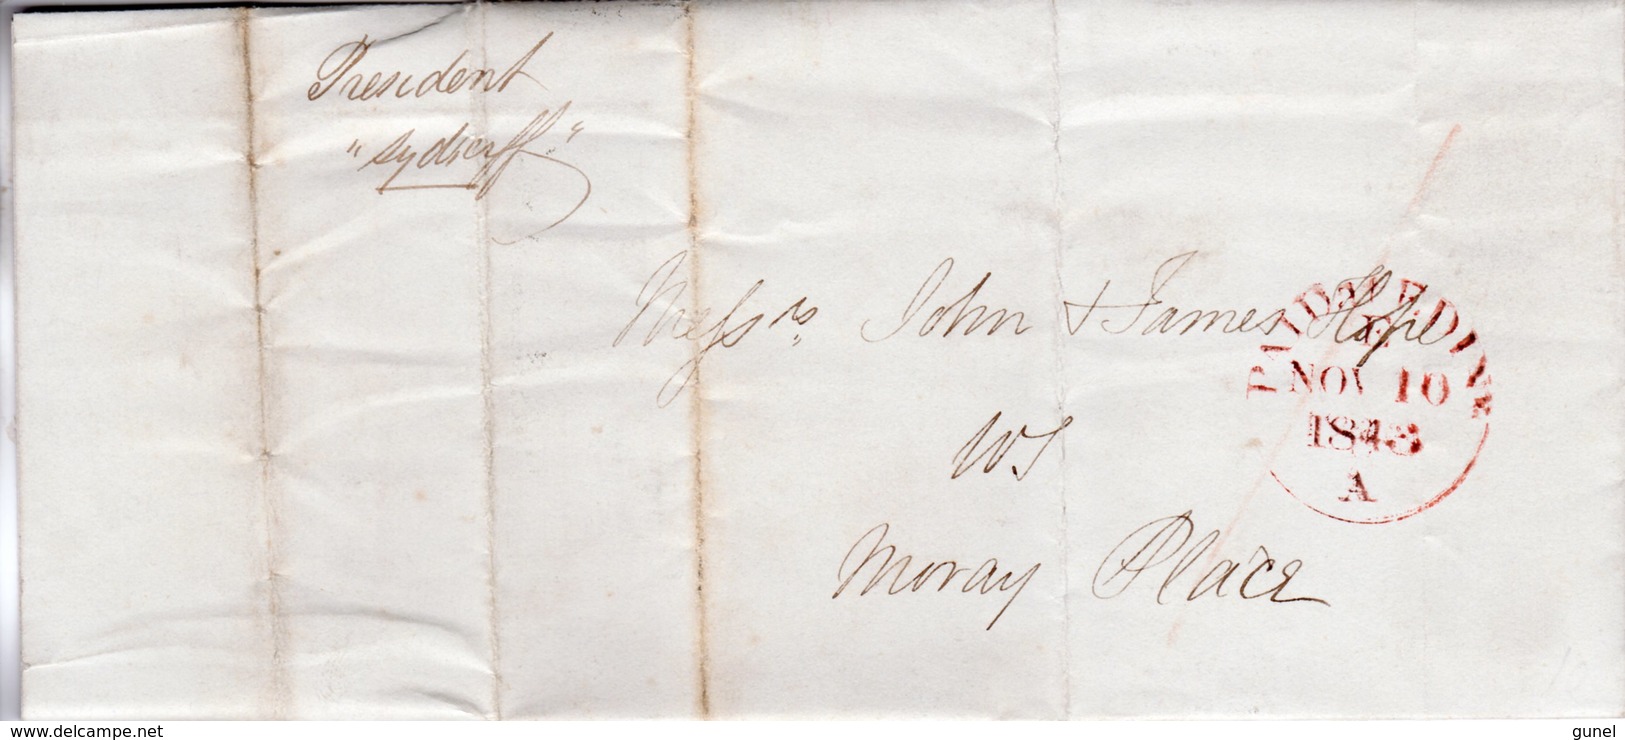 President
"Sydserff"
Messrs John & James Hope
WS
Moray Place
PAID EDIN
NOV 10
1843
A
www.delcampe.net
gunel